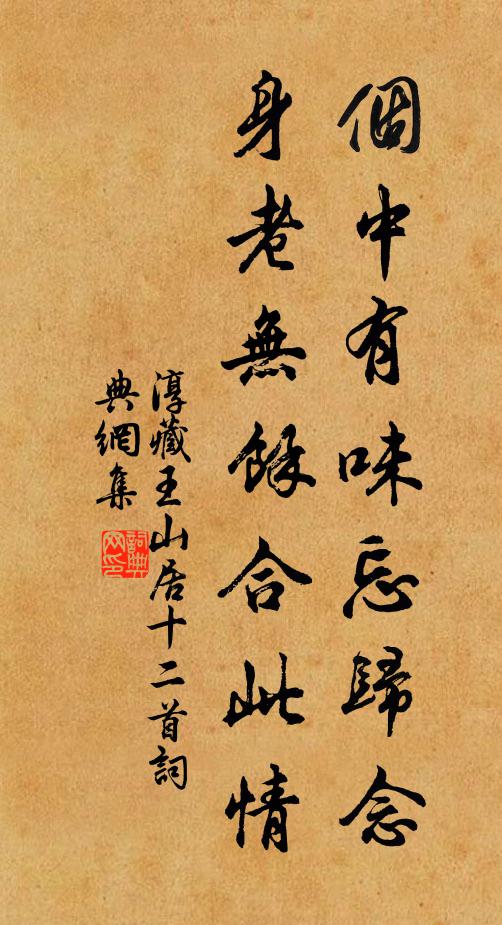 個中有味忘歸念
身老無餘合此情
淳藏王山居十二首詞
典網集
詞典
网印